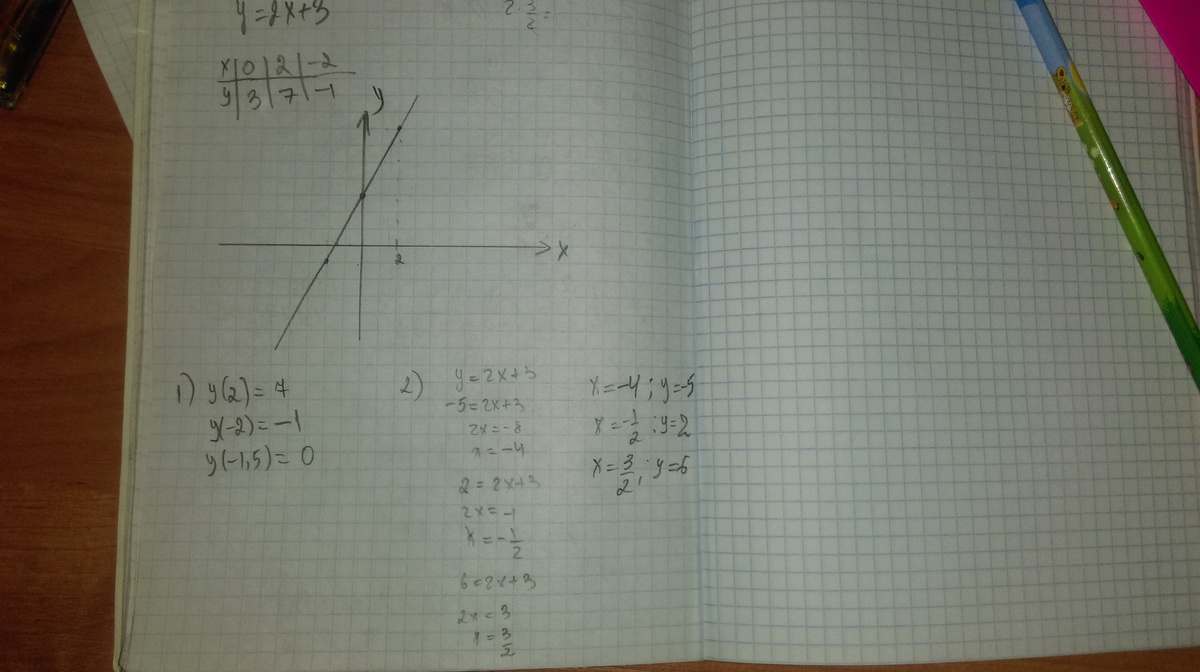 y = 2x+3
x | 0 | 2 | -2
y | 3 | 7 | -1
y
x
2
1) y(2) = 7
y(-2) = -1
y(-1,5) = 0
2) y = 2x+3
-5 = 2x+3
2x = -8
x = -4
2 = 2x+3
2x = -1
x = -1/2
6 = 2x+3
2x = 3
x = 3/2
x = -4; y = -5
x = -1/2; y = 2
x = 3/2; y = 6